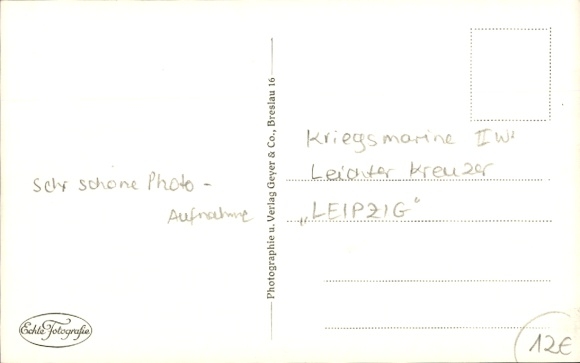 Sehr schöne Photo -
Aufnahme
Echte Fotografie
Photographie u. Verlag Geyer & Co., Breslau 16
Kriegsmarine II W'
Leichter Kreuzer
„LEIPZIG“
12€